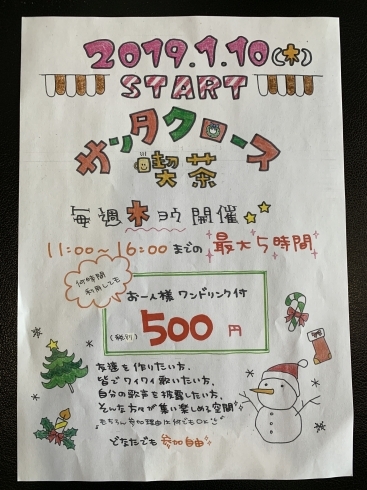 2019.1.10(木)
START
サンタクロース
喫茶
毎週木ヨウ開催
11:00〜16:00までの最大5時間
何時間
利用しても
お一人様 ワンドリンク付
(税別) 500円
友達を作りたい方、
皆でワイワイ歌いたい方、
自分の歌声を披露したい方、
そんな方々が集い楽しめる空間
"もちろん参加理由は何でもOK"
どなたでも参加自由